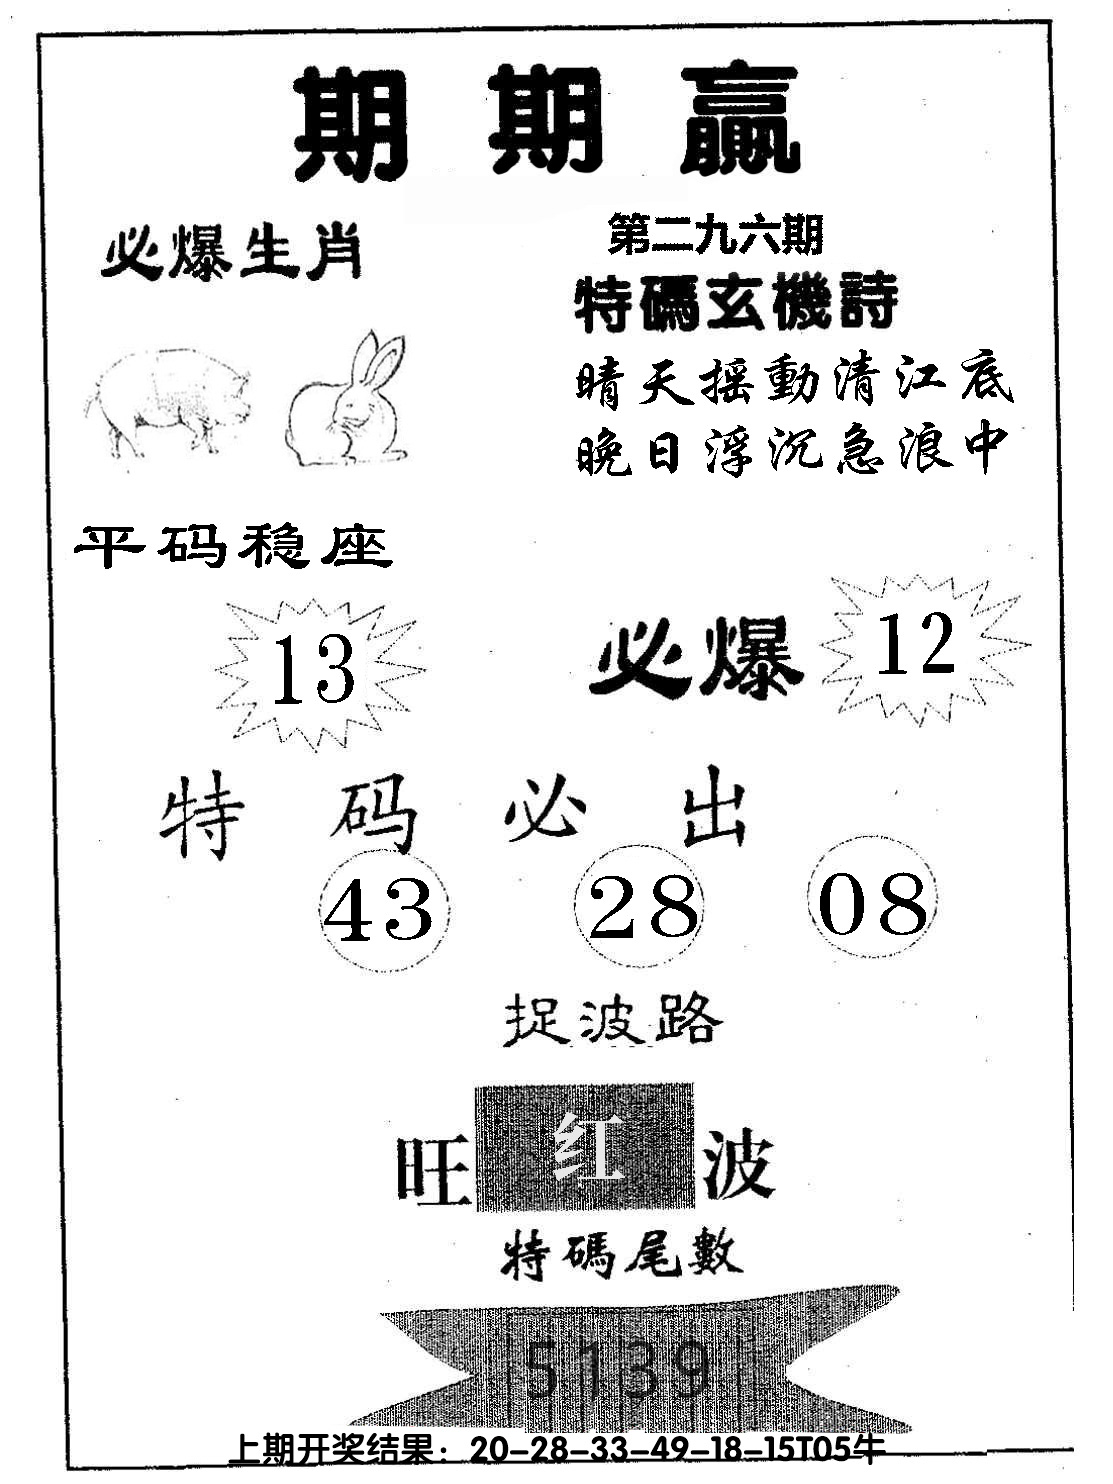 期期赢
必爆生肖
第二九六期
特碼玄機詩
晴天摇動清江底
晚日浮沉急浪中
平码稳座
13
必爆 12
特码必出
43 28 08
捉波路
旺红波
特碼尾數
5139
上期开奖结果：20-28-33-49-18-15T05牛